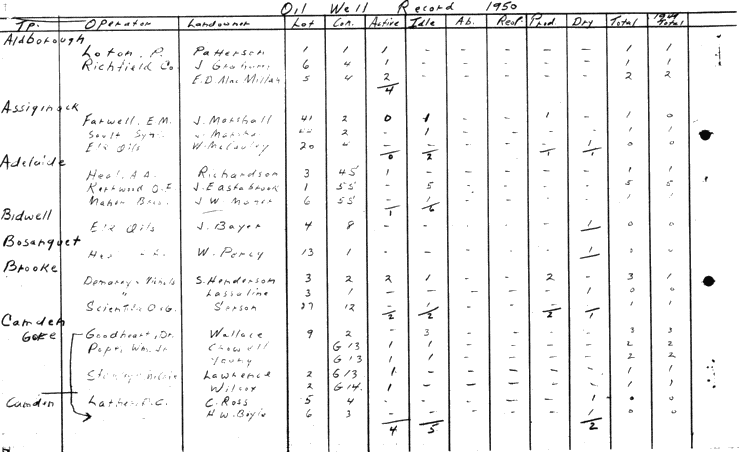 Oil Well Record 1950
Tp. Operator Landowner Lot Con. Active Idle Ab. Reop. Prod. Dry Total 1949 Total
Aldborough
Loton, P. Patterson 1 1 1 - - - - - 1 1
Richfield Co. J. Graham 6 4 1 - - - - - 1 1
E.D. MacMillan 5 4 2 - - - - - 2 2
4
Assiginack
Farwell, E.M. J. Marshall 41 2 0 1 - - 1 - 1 0
2 - 1 - - - - 1
Elk Oils W. McCauley 20 4 - - - - - 1 0 0
0 2 1 1
Adelaide
Heal, A.A. Richardson 3 45 1 - - - - - 1 1
O.E. J. Eastabrook 1 55 - 5 - - - - 5 5
Maher Bros. J.W. 6 55 - 1 - - - - 1 1
1 6
Bidwell
Elk Oils J. Bayer 4 8 - - - - - 1 0 0
Bosanquet
W. Percy 13 1 - - - - - 1 0 0
Brooke
S. Henderson 3 2 2 1 - - 2 - 3 1
" Lassaline 3 1 - - - - - 1 0 0
Scientific O.G. 27 12 - 1 - - - - 1 1
2 2 2 1
Camden
Gore
Goodheart, Dr. Wallace 9 2 - 3 - - - - 3 3
Pope, Wm. Jr. G 13 1 1 - - - - 2 2
Young G 13 1 1 - - - - 2 2
Lawrence 2 G 13 1 - - - - - 1 1
Wilcox 2 G 14 1 - - - - - 1 1
Camden C. Ross 5 4 - - - - - 1 0 0
H.W. Boyle 6 3 - - - - - 1 0 0
4 5 2